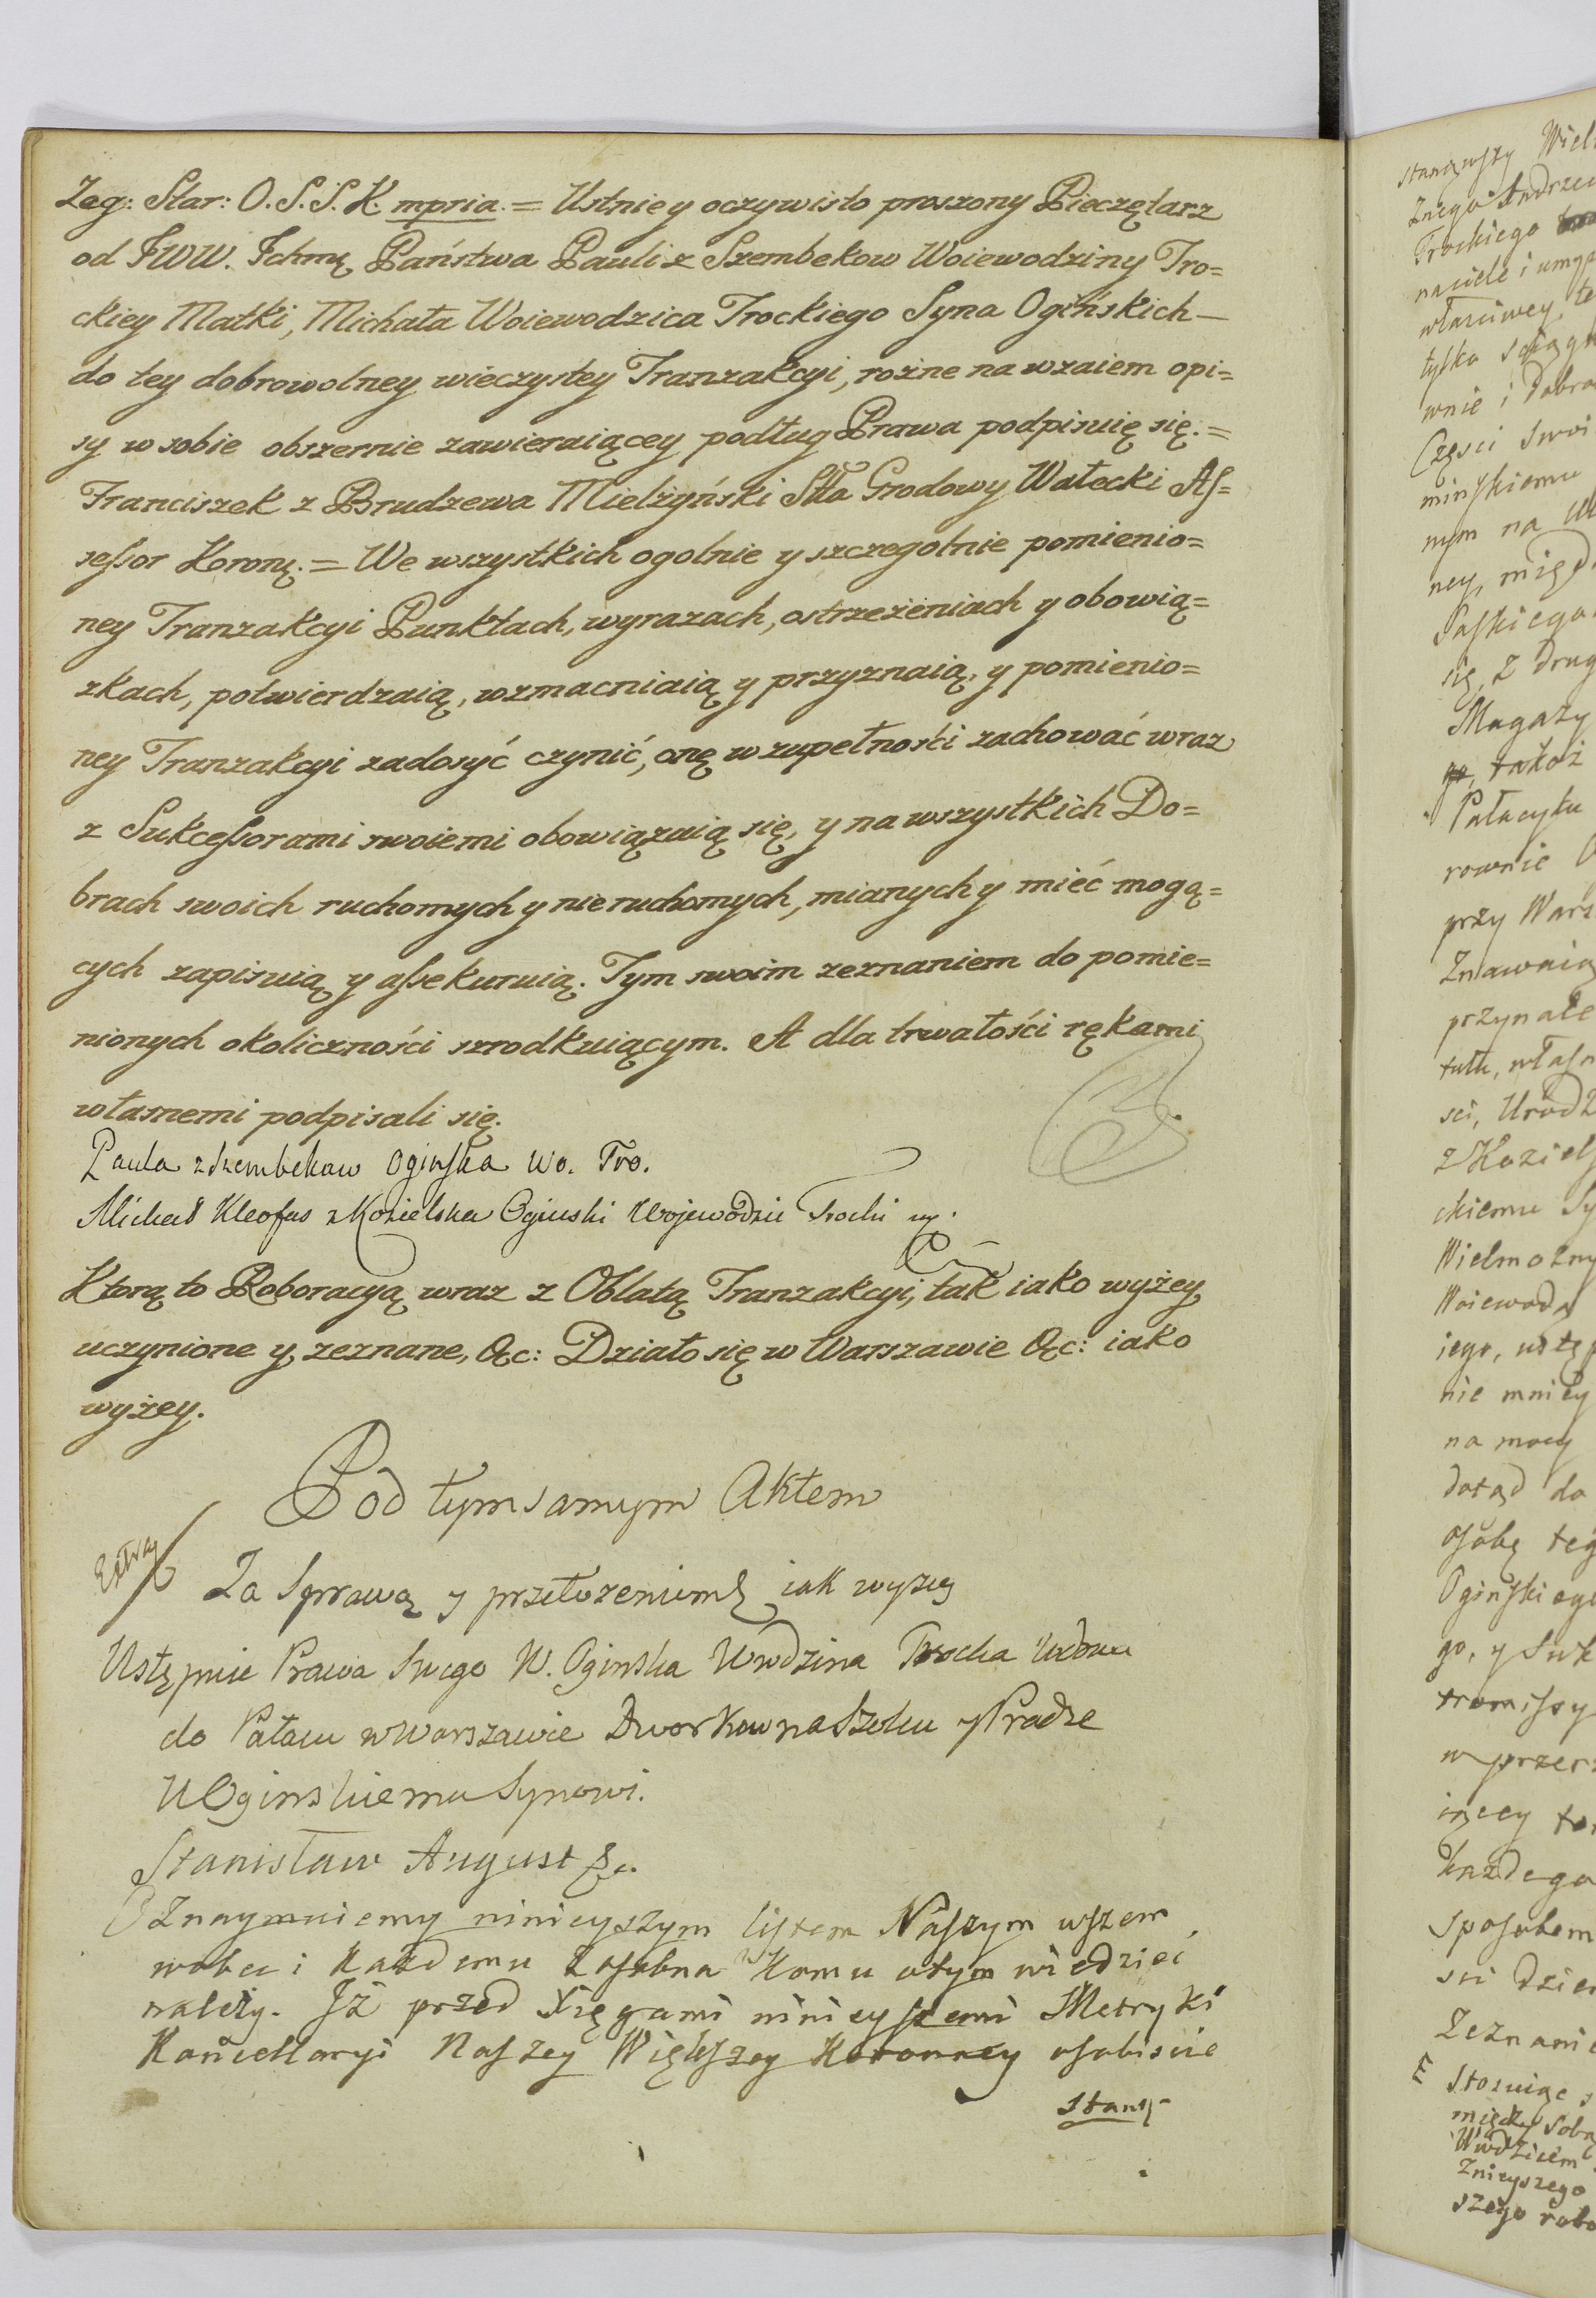 Zeg: Star: O. S. S. K. mpria. = Ustnie y oczywisto proszony Pieczętarz
od JWW. Ichmę Państwa Pauli z Szembekow Woiewodziny Tro=
ckiey Matki, Michała Woiewodzica Trockiego Syna Ogińskich —
do tey dobrowolney wieczystey Tranzakcyi, rożne na wzaiem opi=
sy w sobie obszernie zawieraiącey podług Prawa podpisuię się. =
Franciszek z Brudzewa Mielżyński Sttta Grodowy Wałecki As=
sessor Koronę. = We wszystkich ogolnie y szczegolnie pomienio=
ney Tranzakcyi Punktach, wyrazach, ostrzeżeniach y obowią=
zkach, potwierdzaią, wzmacniaią y przyznaią, y pomienio=
ney Tranzakcyi zadosyć czynić, onę w zupełności zachować wraz
z Sukcessorami swoiemi obowiązuią się, y na wszystkich Do=
brach swoich ruchomych y nieruchomych, mianych y mieć mogą=
cych zapisuią y assekuruią. Tym swoim zeznaniem do pomie=
nionych okoliczności szrodkuiącym. A dla trwałości rękami
własnemi podpisali się.
Paula z Szembekow Oginska Wo. Tro.
Michał Kleofas z Kozielska Oginski Wojewodzic Trocki mp.
Ktorą to Roboracyą wraz z Oblatą Tranzakcyi, tak iako wyżey
uczynione y zeznane, &c: Działo się w Warszawie &c: iako
wyżey.
Pod tym samym Aktem
Extra
Za Sprawą y przełożeniem jak wyzey
Ustępuie Prawa Swego W. Oginska Wwdzina Trocka
do Pałacu w Warszawie Dworkow na Szolcu y Pradze
U Oginskiemu Synowi.
Stanisław August &c.
Oznaymuiemy ninieyszym listem Naszym wszem
wobec i Każdemu zosobna Komu otym wiedzieć
należy. Iż przed Xięgami ninieyszemi Metryki
Kancellaryi Naszey Większey Koronney osobiscie
stang
stanąwszy
Trockiego
własciwey
tylko
wnie i Dobro
Części Swoi
minskiemu
nym na
ney, między
się, z drug
takoż
Pałacyku
rownie
przy Wars
przynale
sci, Urodz
z Koziels
ckiemu Sy
Wielmożny
Woiewody
iego, ustęp
nie mniey
na mocy
dotąd do
osobę teg
Oginskiego
go, y Suk
w przerz
każdego
sposobem
Zeznanie
E
Stosuiąc
między Sobą
Wwdzicem
szego robo